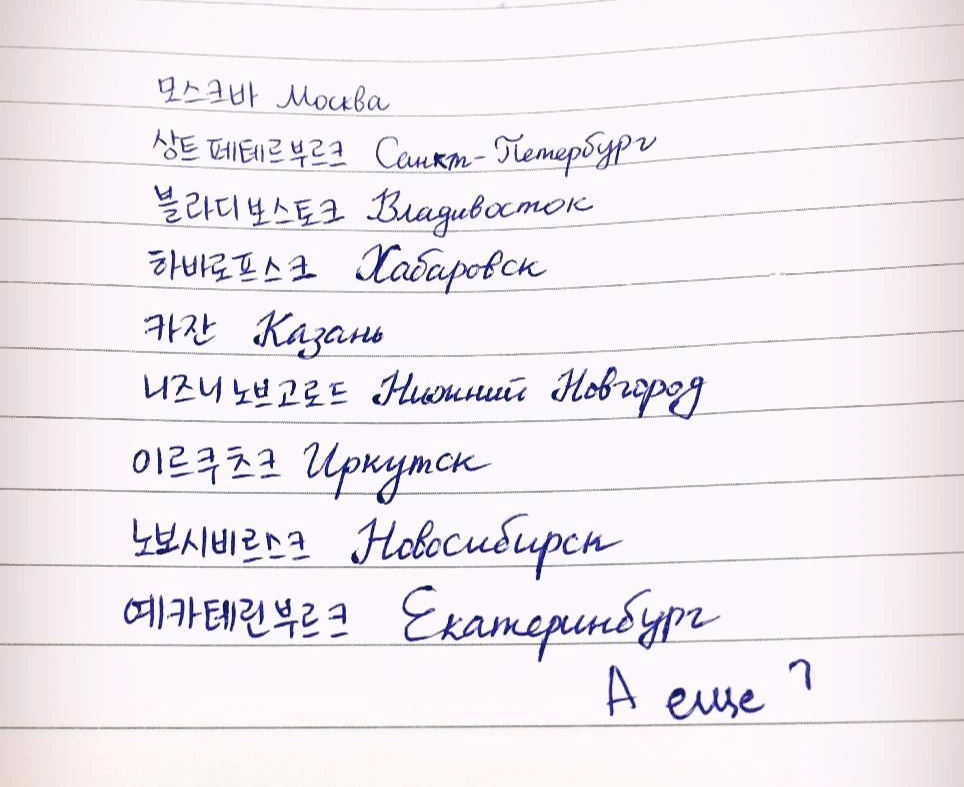 모스크바 Москва
상트페테르부르크 Санкт-Петербург
블라디보스토크 Владивосток
하바로프스크 Хабаровск
카잔 Казань
니즈니노브고로드 Нижний Новгород
이르쿠츠크 Иркутск
노보시비르스크 Новосибирск
예카테린부르크 Екатеринбург
А еще ?